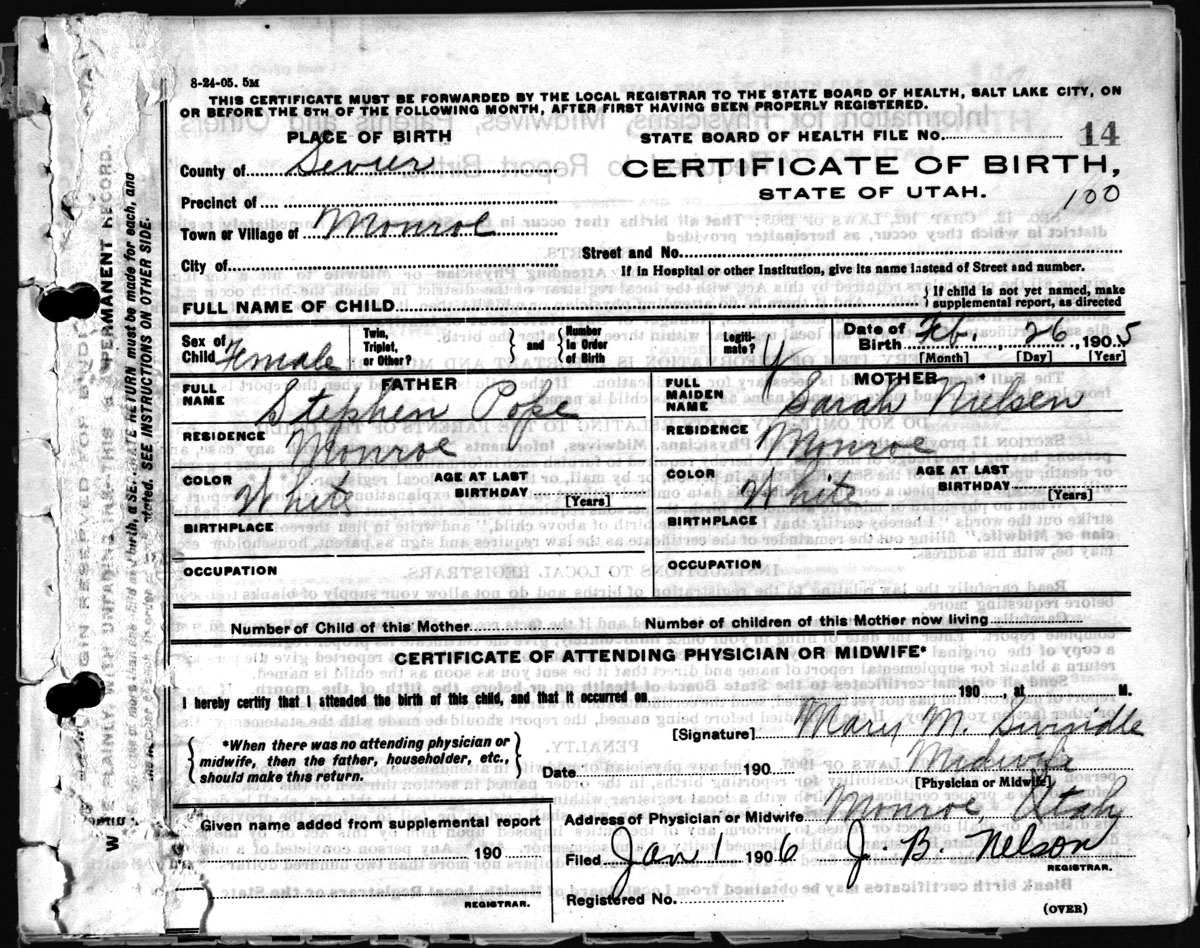 8-24-05. 5M
THIS CERTIFICATE MUST BE FORWARDED BY THE LOCAL REGISTRAR TO THE STATE BOARD OF HEALTH, SALT LAKE CITY, ON
OR BEFORE THE 5TH OF THE FOLLOWING MONTH, AFTER FIRST HAVING BEEN PROPERLY REGISTERED.
PLACE OF BIRTH
STATE BOARD OF HEALTH FILE NO. 14
County of Sevier
CERTIFICATE OF BIRTH,
STATE OF UTAH.
100
Precinct of
Town or Village of Monroe
Street and No.
City of
If in Hospital or other Institution, give its name instead of Street and number.
FULL NAME OF CHILD
{ If child is not yet named, make
supplemental report, as directed
Sex of Child Female
Twin, Triplet, or Other? } and { Number in Order of Birth
Legiti-mate? Y
Date of Birth Feb. 26, 1905
[Month] [Day] [Year]
FATHER
FULL NAME Stephen Pope
RESIDENCE Monroe
COLOR White
AGE AT LAST BIRTHDAY [Years]
BIRTHPLACE
OCCUPATION
MOTHER
FULL MAIDEN NAME Sarah Nielsen
RESIDENCE Monroe
COLOR White
AGE AT LAST BIRTHDAY [Years]
BIRTHPLACE
OCCUPATION
Number of Child of this Mother
Number of children of this Mother now living
CERTIFICATE OF ATTENDING PHYSICIAN OR MIDWIFE*
I hereby certify that I attended the birth of this child, and that it occurred on 190 , at M.
{ *When there was no attending physician or
midwife, then the father, householder, etc.,
should make this return. }
[Signature] Mary M. Swindle
Date 190
Midwife
[Physician or Midwife]
Address of Physician or Midwife Monroe, Utah
Given name added from supplemental report
190
REGISTRAR.
Filed Jan 1 1906 J. B. Nelson
REGISTRAR.
Registered No.
(OVER)
PERMANENT RECORD.
RETURN must be made for each, and
stated. SEE INSTRUCTIONS ON OTHER SIDE.